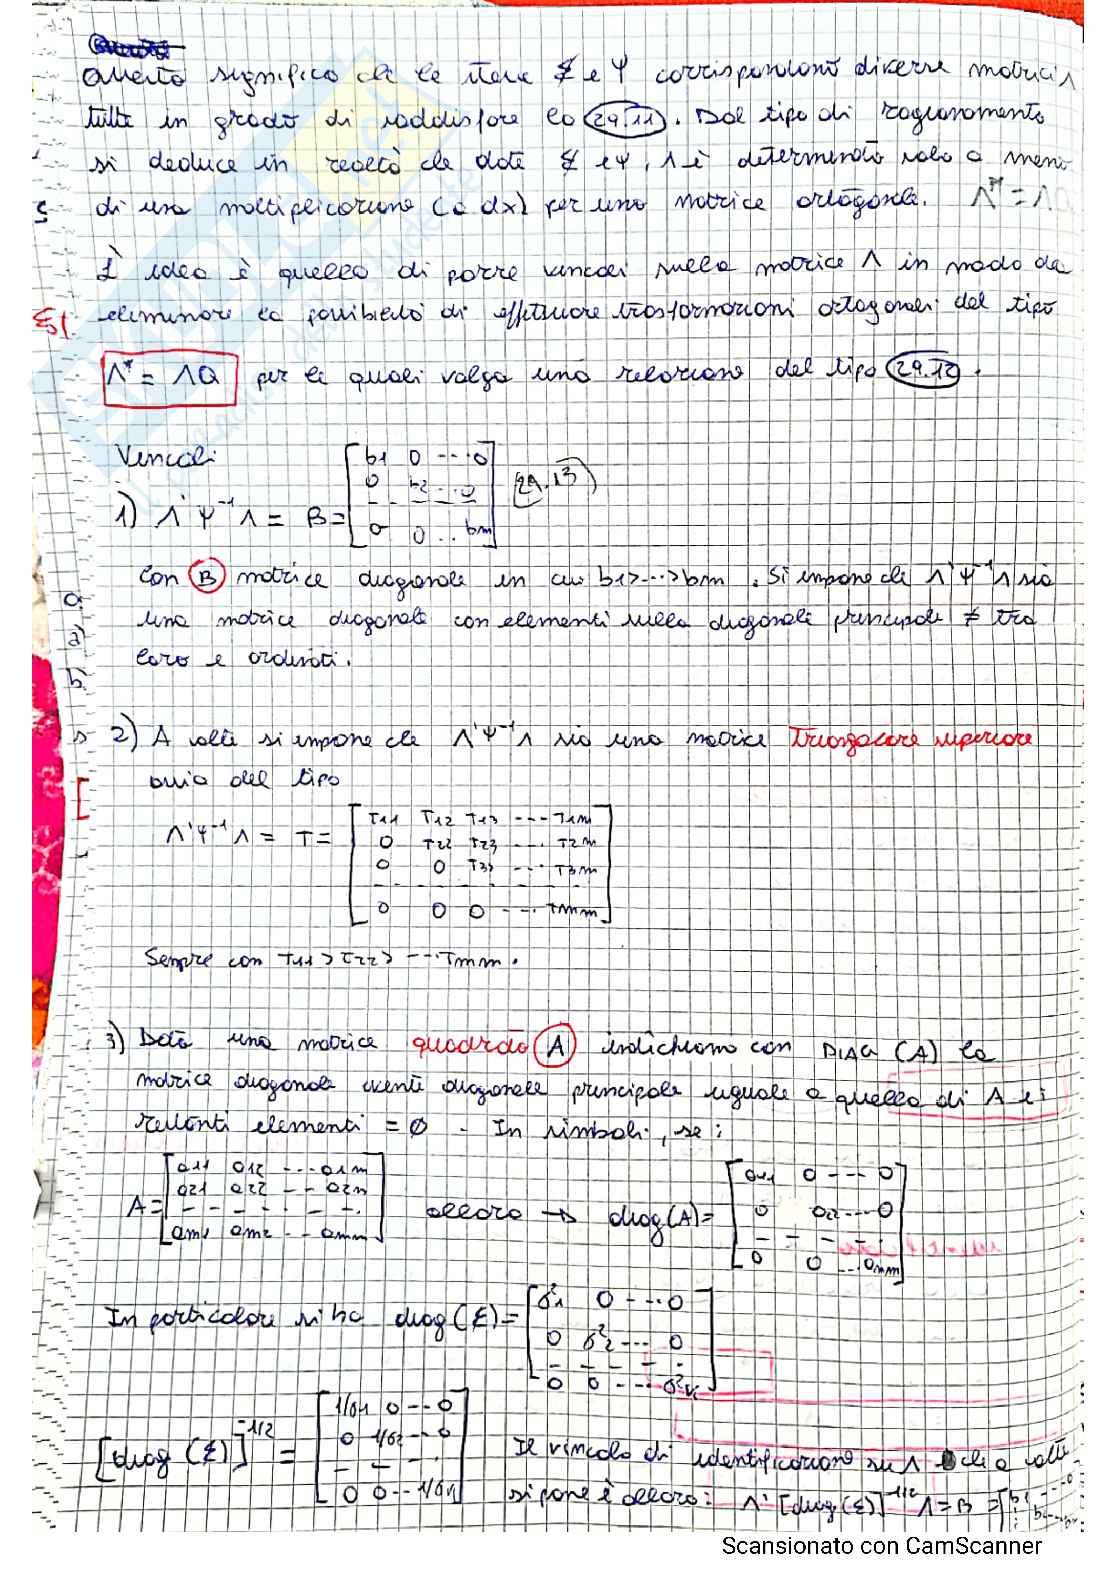 Questo significa che le stesse Σ e Ψ corrispondono diverse matrici Λ
tutte in grado di soddisfare la (29.11). Dal tipo di ragionamento
si deduce in realtà che date Σ e Ψ, Λ è determinata solo a meno
di una moltiplicazione (a dx) per una matrice ortogonale. Λ* = Λ
L'idea è quella di porre vincoli sulla matrice Λ in modo da
eliminare la possibilità di effettuare trasformazioni ortogonali del tipo
Λ* = ΛQ per le quali valga una relazione del tipo (29.12).
Vincoli
1) Λ'Ψ⁻¹Λ = B = [b1 0 ---0
0 b2 ..0
- - - - - -
0 0 .. bm] (29.13)
Con B matrice diagonale in cui b1>...>bm. Si impone che Λ'Ψ⁻¹Λ sia
una matrice diagonale con elementi sulla diagonale principale ≠ tra
loro e ordinati.
2) A volte si impone che Λ'Ψ⁻¹Λ sia una matrice Triangolare superiore
ossia del tipo
Λ'Ψ⁻¹Λ = T = [T11 T12 T13 ---- T1m
0 T22 T23 ---- T2m
0 0 T33 --- T3m
- - - - - - - -
0 0 0 - - -. Tmm]
Sempre con T11 > T22 > ---Tmm.
3) Data una matrice quadrata A indichiamo con DIAG (A) la
matrice diagonale avente diagonale principale uguale a quella di A e i
restanti elementi = 0 - In simboli, se:
A = [a11 a12 --- a1m
a21 a22 -- a2m
- - - - - -.
am1 am2 -- amm] allora → diag(A) = [a11 0 --- 0
0 a22 --- 0
- - - -
0 0 ... amm]
In particolare si ha diag(Σ) = [σ²1 0 ---0
0 σ²2 --- 0
- - - - -
0 0 --- σ²]
[diag (Σ)]^-1/2 = [1/σ1 0 -- 0
0 1/σ2 -- 0
- - - -
0 0 -- 1/σ]
Il vincolo di identificazione su Λ che a volte
si pone è allora: Λ'[diag(Σ)]^-1/2 Λ = B = [b1 ... 0
Scansionato con CamScanner